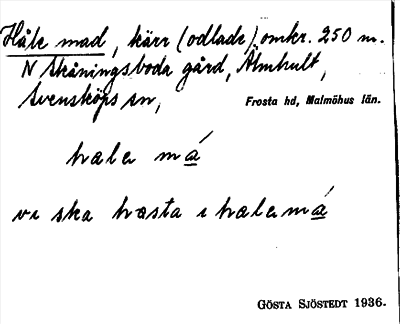 Håle mad, kärr (odlade) omkr. 250 m.
N Skåningsboda gård, Älmhult,
Svensköps sn,
Frosta hd, Malmöhus län.
hale má
vi ska hasta i halemá
GÖSTA SJÖSTEDT 1936.